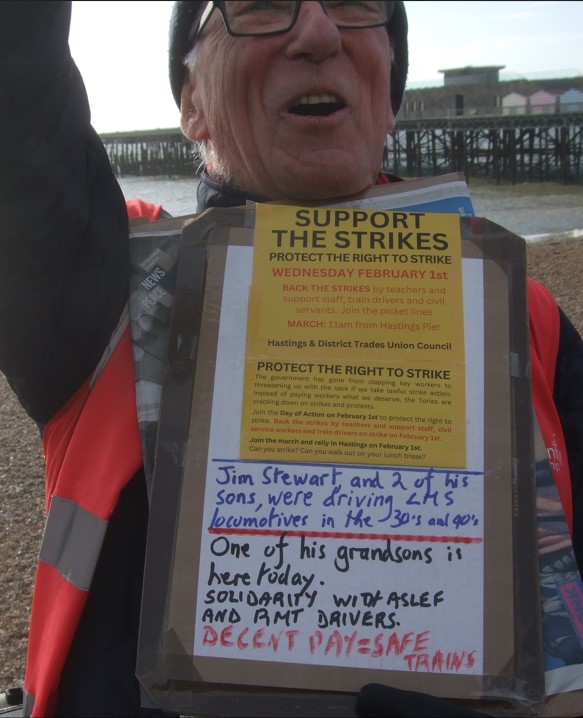 SUPPORT
THE STRIKES
PROTECT THE RIGHT TO STRIKE
WEDNESDAY FEBRUARY 1st
BACK THE STRIKES by teachers and
support staff, train drivers and civil
servants. Join the picket lines
MARCH: 11am from Hastings Pier
Hastings & District Trades Union Council
PROTECT THE RIGHT TO STRIKE
The government has gone from clapping key workers to
threatening us with the sack if we take lawful strike action.
Instead of paying workers what we deserve, the Tories are
cracking down on strikes and protests.
Join the Day of Action on February 1st to protect the right to
strike. Back the strikes by teachers and support staff, civil
service workers and train drivers on strike on February 1st.
Join the march and rally in Hastings on February 1st.
Can you strike? Can you walk out on your lunch break?
Jim Stewart, and 2 of his
sons, were driving LMS
locomotives in the 30's and 40's
One of his grandsons is
here today.
SOLIDARITY WITH ASLEF
AND RMT DRIVERS.
DECENT PAY=SAFE
TRAINS
NEWS